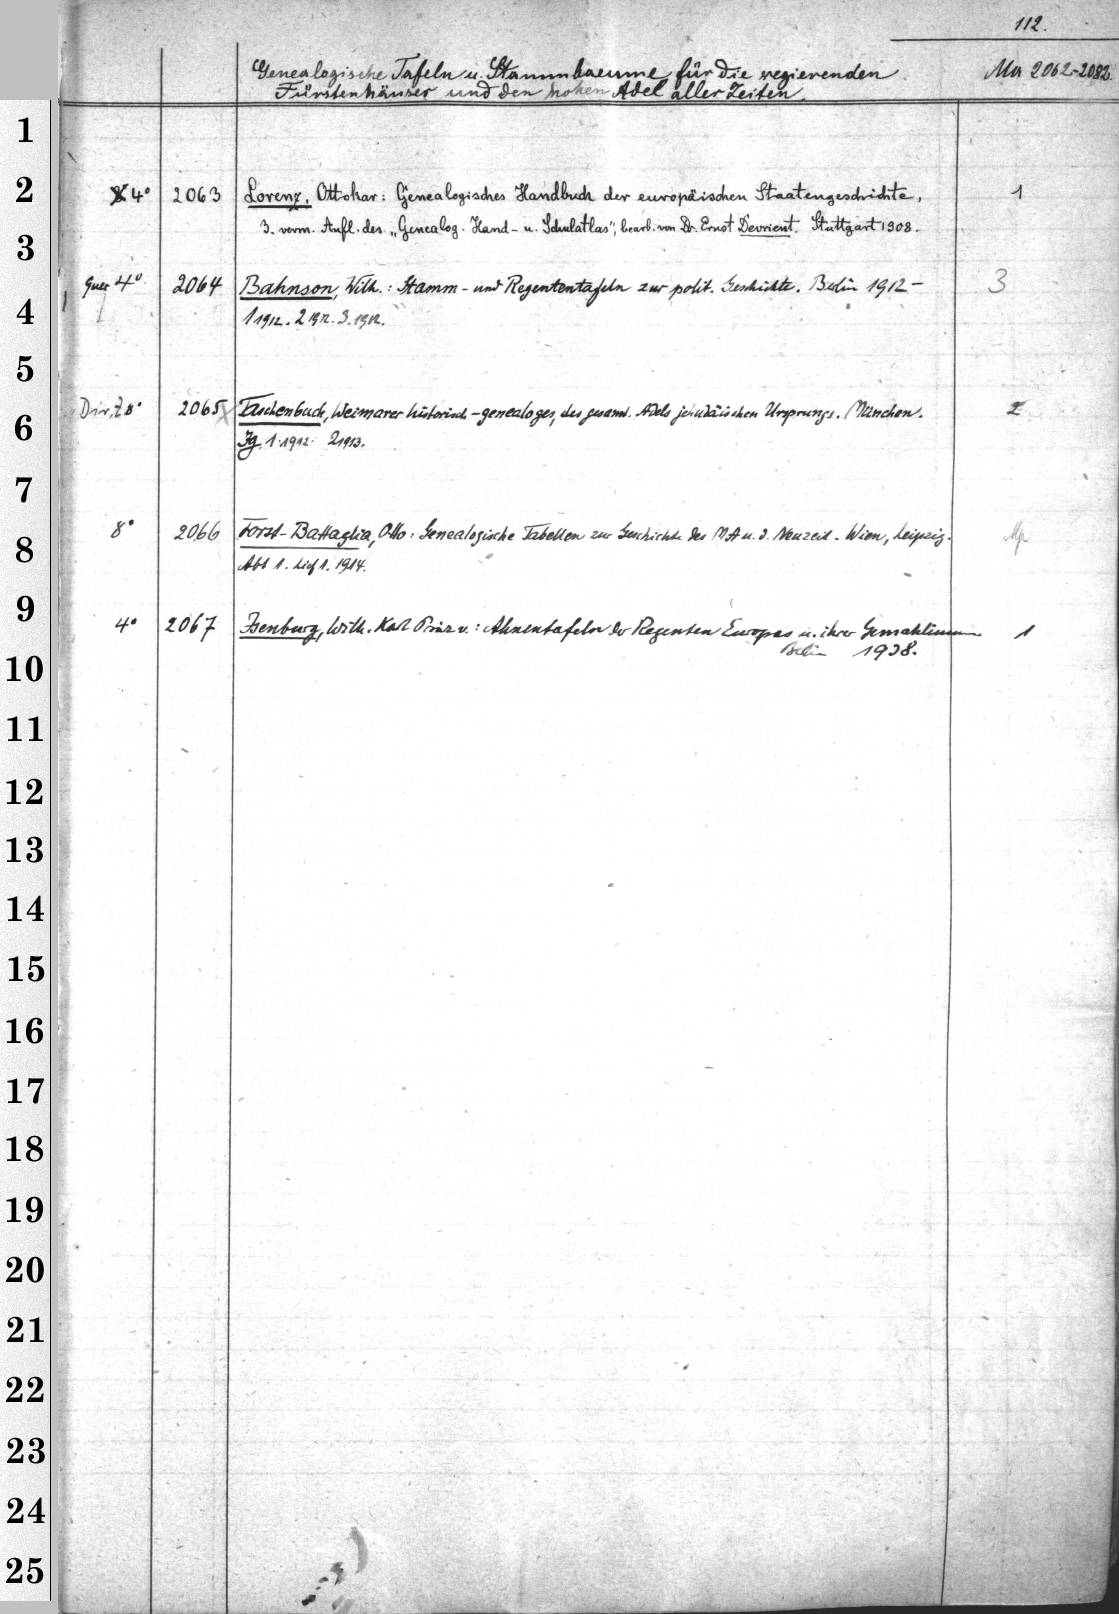 112.
Genealogische Tafeln u. Stammbaeume für die regierenden Ma 2062-2082.
Fürstenhäuser und den hohen Adel aller Zeiten.
1
2
4° 2063 Lorenz, Ottokar: Genealogisches Handbuch der europäischen Staatengeschichte, 1
3. verm. Aufl. des „Genealog. Hand- u. Schulatlas", bearb. von Dr. Ernst Devrient. Stuttgart 1908.
3
Quer 4° 2064 Bahnson, Wilh.: Stamm- und Regententafeln zur polit. Geschichte. Berlin 1912- 3
4
1 1912. 2 1912. 3. 1912.
5
Dir. Z 8° 2065 Taschenbuch, Weimarer historisch-genealoges, des gesamt. Adels jehudäischen Ursprungs. München. 2
6
Jg. 1. 1912. 2 1913.
7
8° 2066 Forst-Battaglia, Otto: Genealogische Tabellen zur Geschichte des MA u. d. Neuzeit. Wien, Leipzig.
8
Abt 1. Lief 1. 1914.
9
4° 2067 Isenburg, Wilh. Karl Prinz v.: Ahnentafeln der Regenten Europas u. ihrer Gemahlinnen 1
Berlin 1938.
10
11
12
13
14
15
16
17
18
19
20
21
22
23
24
25